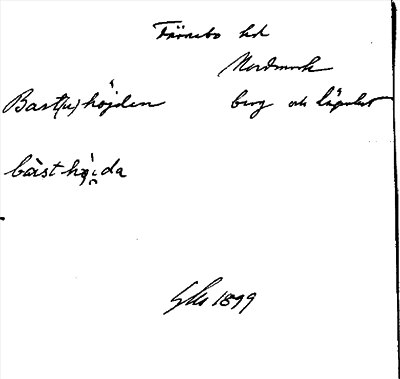 Färnebo hd
Nordmark
Bast(u)höjden berg och lägenhet
bàsthö̀i̯da
1899